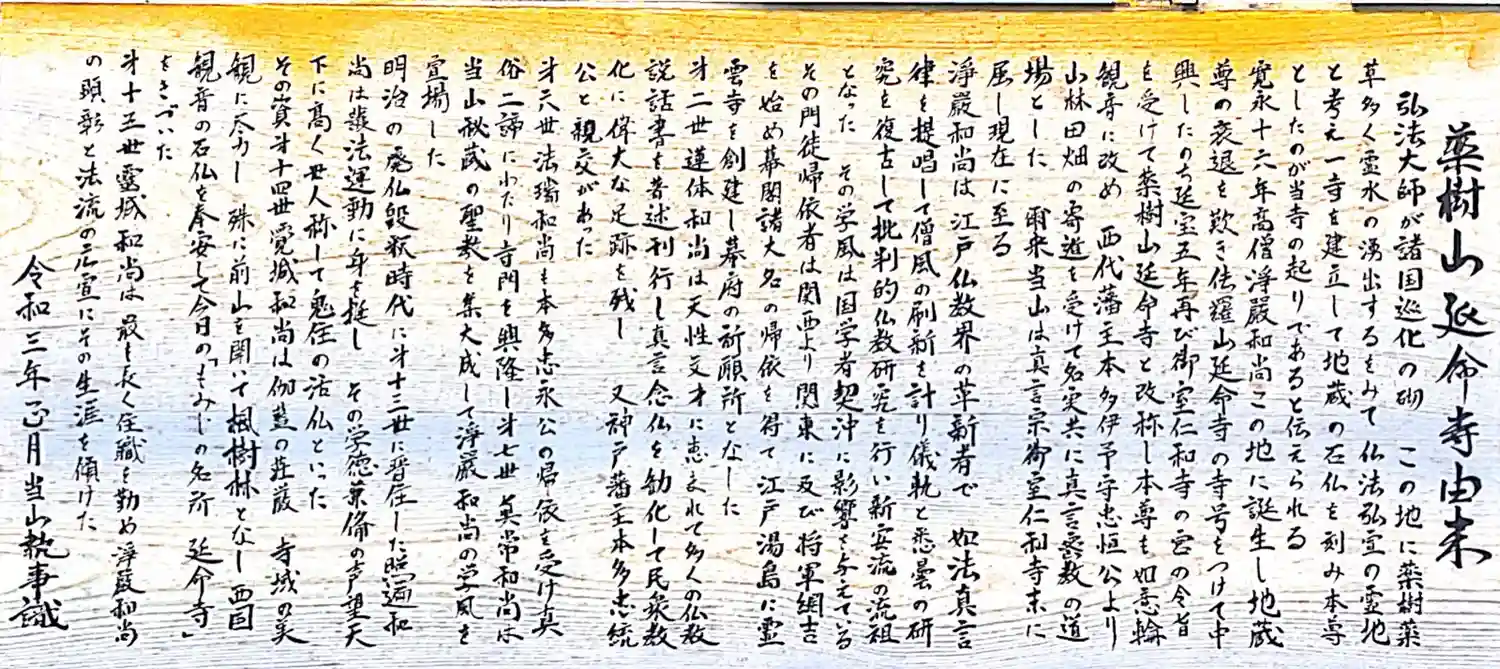 薬樹山延命寺由来
弘法大師が諸国巡化の砌 この地に薬樹薬
草多く霊水の湧出するをみて 仏法弘宣の霊地
と考え一寺を建立して地蔵の石仏を刻み本尊
としたのが当寺の起りであると伝えられる
寛永十六年高僧淨嚴和尚この地に誕生し地蔵
尊の衰退を歎き佉羅山延命寺の寺号をつけて中
興したのち延宝五年再び御室仁和寺の宮の令旨
を受けて薬樹山延命寺と改称し本尊も如意輪
観音に改め 西代藩主本多伊予守忠恒公より
山林田畑の寄進を受けて名実共に真言密教の道
場とした 爾来当山は真言宗御室仁和寺末に
属し現在に至る
淨嚴和尚は江戸仏教界の革新者で 如法真言
律を提唱して僧風の刷新を計り儀軌と悉曇の研
究を復古して批判的仏教研究を行い新安流の流祖
となった その学風は国学者契沖に影響を与えている
その門徒帰依者は関西より関東に及び将軍綱吉
を始め幕閣諸大名の帰依を得て江戸湯島に霊
雲寺を創建し幕府の祈願所となした
才二世蓮体和尚は天性文才に恵まれて多くの仏教
説話書を著述刊行し真言念仏を勧化して民衆教
化に偉大な足跡を残し 又神戸藩主本多忠統
公と親交があった
才六世法瑞和尚も本多忠永公の帰依を受け真
俗二諦にわたり寺門を興隆し才七世真常和尚は
当山秘蔵の聖教を集大成して淨嚴和尚の学風を
宣場した
明治の廃仏毀釈時代に才十三世に晋住した照遍和
尚は護法運動に身を挺し その学徳兼備の声望天
下に高く世人称して鬼住の活仏といった
その資才十四世覚城和尚は伽藍の荘厳 寺域の美
観に尽力し 殊に前山を開いて楓樹林となし 西国
観音の石仏を奉安して今日の「もみじの名所 延命寺」
をきづいた
才十五世霊城和尚は最も長く住職を勤め淨嚴和尚
の顕彰と法流の広宣にその生涯を傾けた
令和三年正月当山執事識